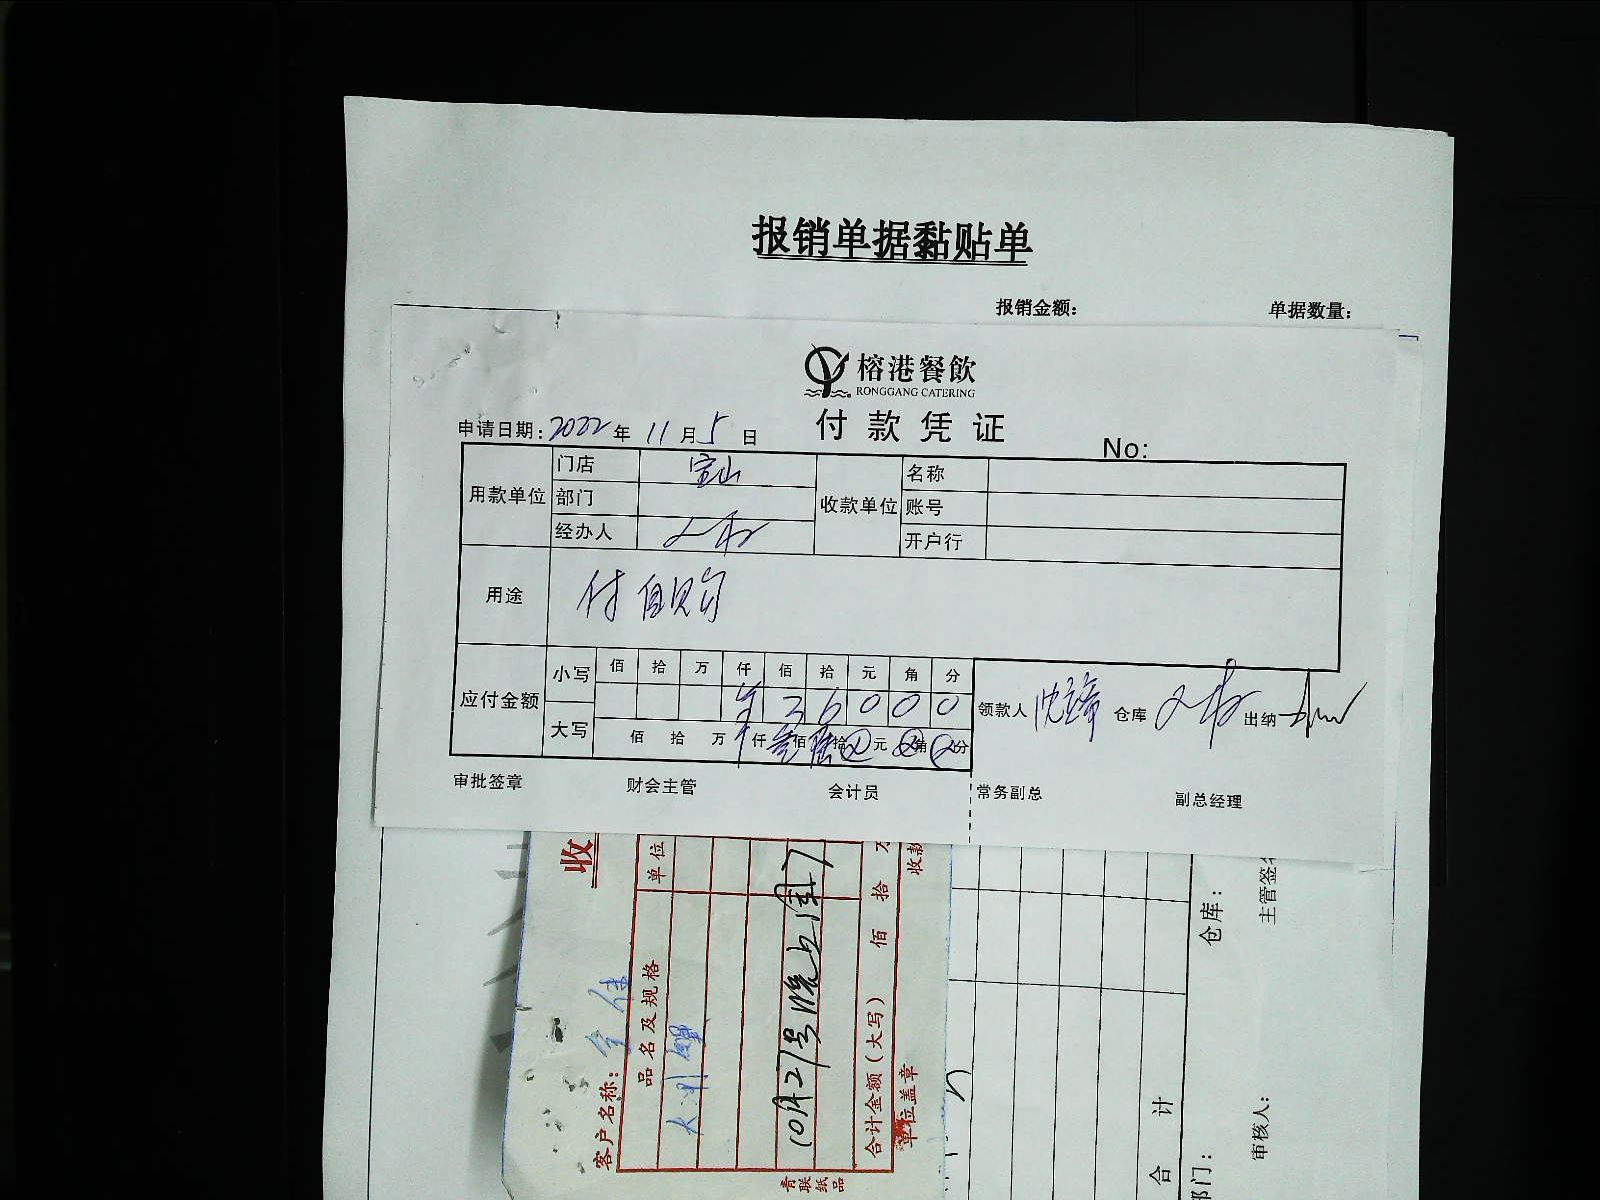 报销单据黏贴单
报销金额: 单据数量:
榕港餐飲
RONGGANG CATERING
付款凭证
申请日期:2022年11月5日 No:
用款单位 门店 宝山 收款单位 名称
部门 账号
经办人 开户行
用途 付自购
应付金额 小写 佰 拾 万 仟 佰 拾 元 角 分
¥ 3 6 0 0 0
大写 佰 拾 万 仟 叁佰 陆拾 元 角 分
领款人 仓库 出纳
审批签章 财会主管 会计员 常务副总 副总经理
收
客户名称:
品名及规格 单位
10月21号晚上
合计金额(大写) 佰 拾 万
单位盖章 收款
青联纸品
合 计
仓库:
部门:
主管签
审核人: